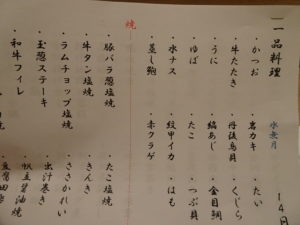 一品料理
水無月
14日
・かつお ・岩カキ ・たい
・牛たたき ・丹後鳥貝 ・くじら
・うに ・縞あじ ・金目鯛
・ゆば ・たこ ・つぶ貝
・水ナス ・紋甲イカ ・はも
・蒸し鮑 ・赤クラゲ
焼
・豚バラ葱塩焼 ・たこ塩焼
・牛タン塩焼 ・きんき
・ラムチョップ塩焼 ・ささかれい
・玉葱ステーキ ・出汁巻き
・和牛フィレ ・帆立醤油焼